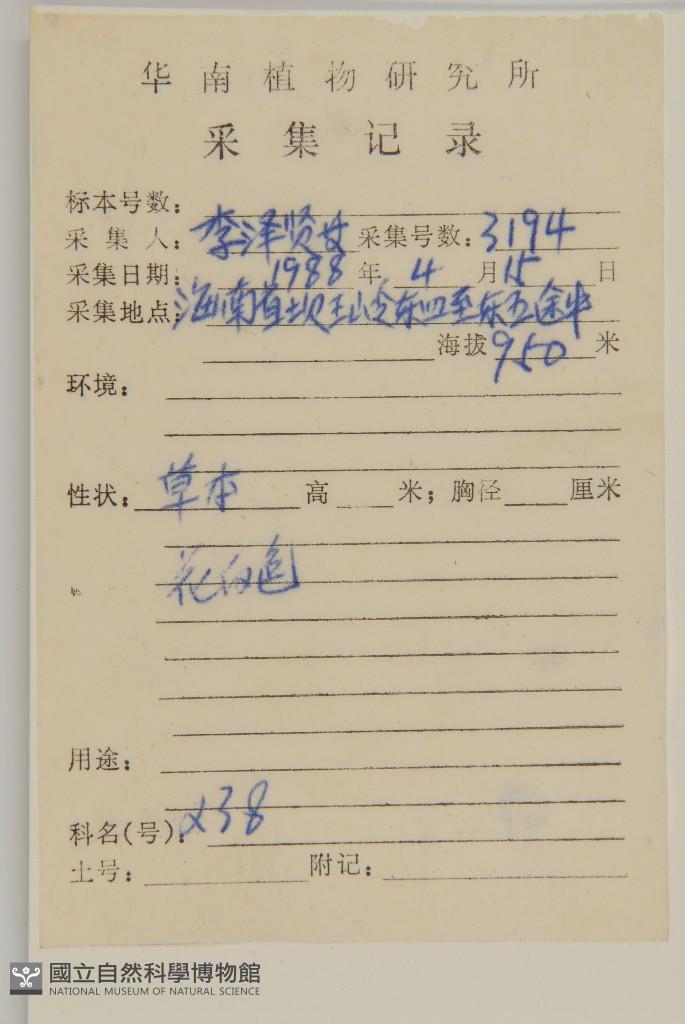 华南植物研究所
采集记录
标本号数:
采集人: 李泽贤 采集号数: 3194
采集日期: 1988年4月15日
采集地点: 海南省坝王岭东四至东五途中
海拔950米
环境:
性状: 草本 高 米; 胸径 厘米
花白色
用途:
科名(号): 238
土号: 附记:
國立自然科學博物館
NATIONAL MUSEUM OF NATURAL SCIENCE